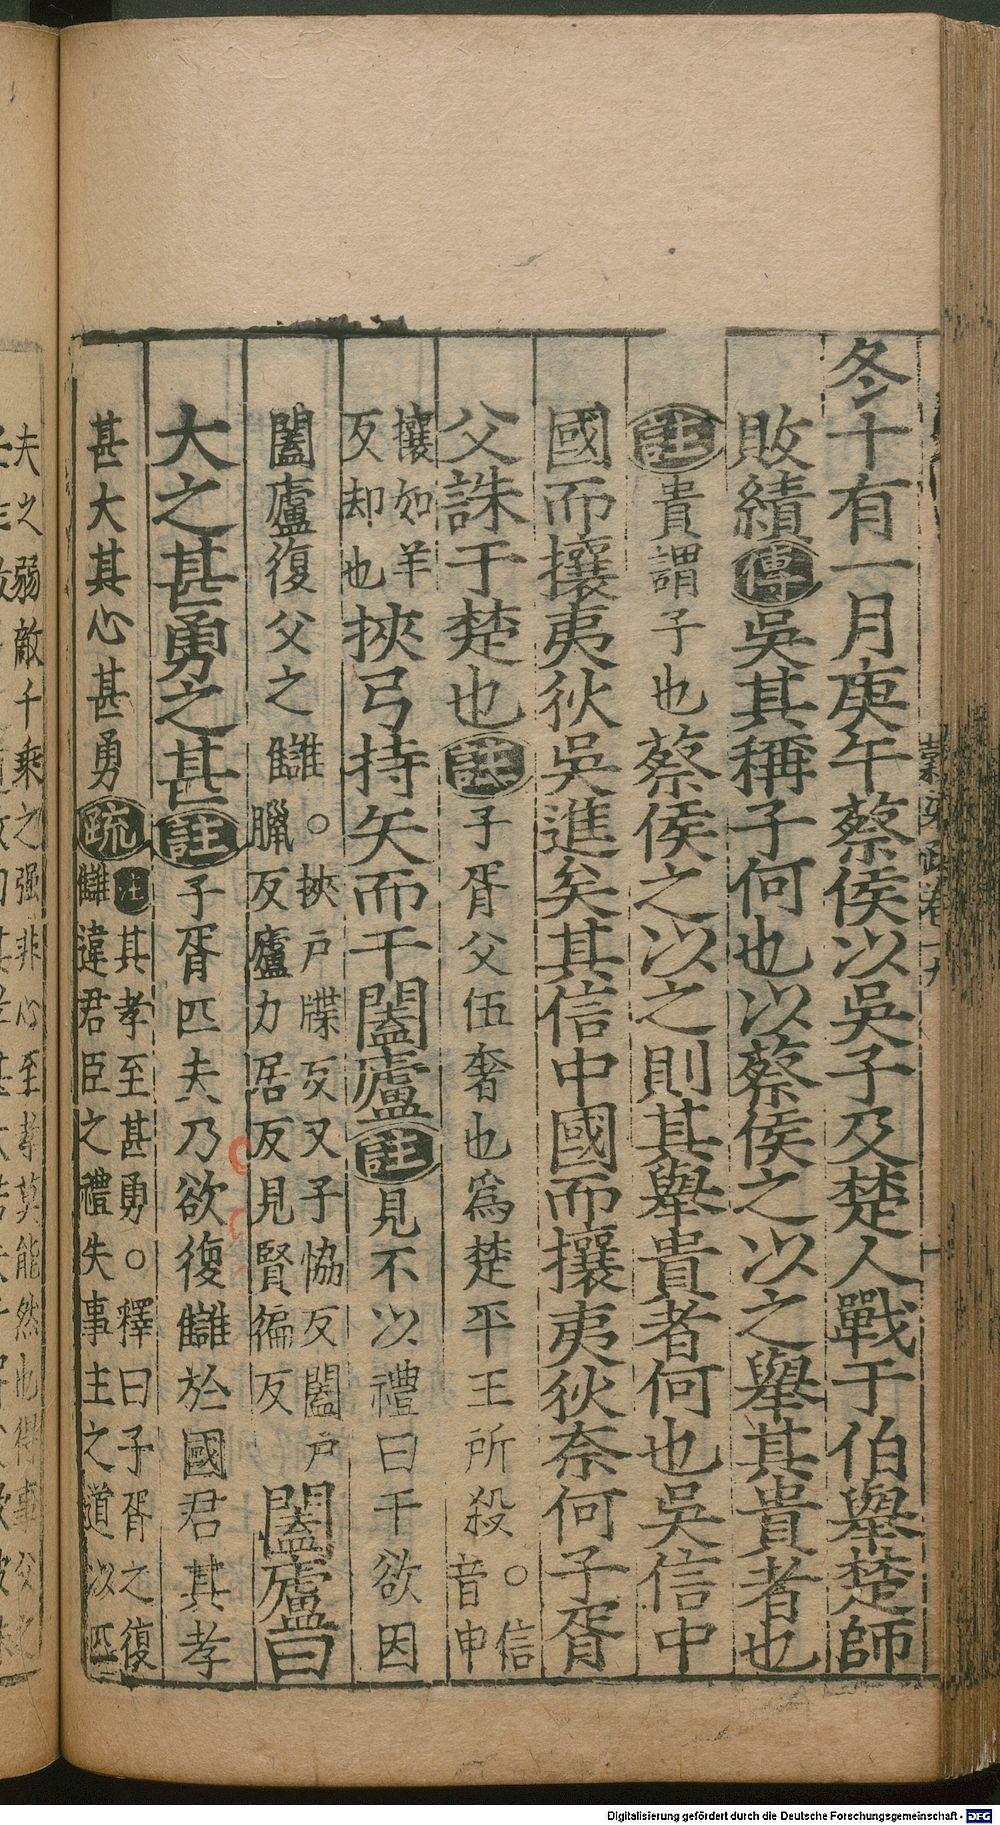 冬十有一月庚午蔡侯以吳子及楚人戰于伯舉楚師
敗績傳吳其稱子何也以蔡侯之以之舉其貴者也
註貴謂子也蔡侯之以之則其舉貴者何也吳信中
國而攘夷狄吳進矣其信中國而攘夷狄奈何子胥
父誅于楚也註子胥父伍奢也爲楚平王所殺○信
音申
攘如羊
反却也挾弓持矢而干闔廬註見不以禮曰干欲因
闔廬復父之讎○挾戶牒反又子協反闔戶
臘反廬力居反見賢徧反闔廬曰
大之甚勇之甚註子胥匹夫乃欲復讎於國君其孝
甚大其心甚勇疏註其孝至甚勇○釋曰子胥之復
讎違君臣之禮失事主之道以匹
夫之弱敵千乘之强非心至孝莫能然也得事父之
Digitalisierung gefördert durch die Deutsche Forschungsgemeinschaft - DFG